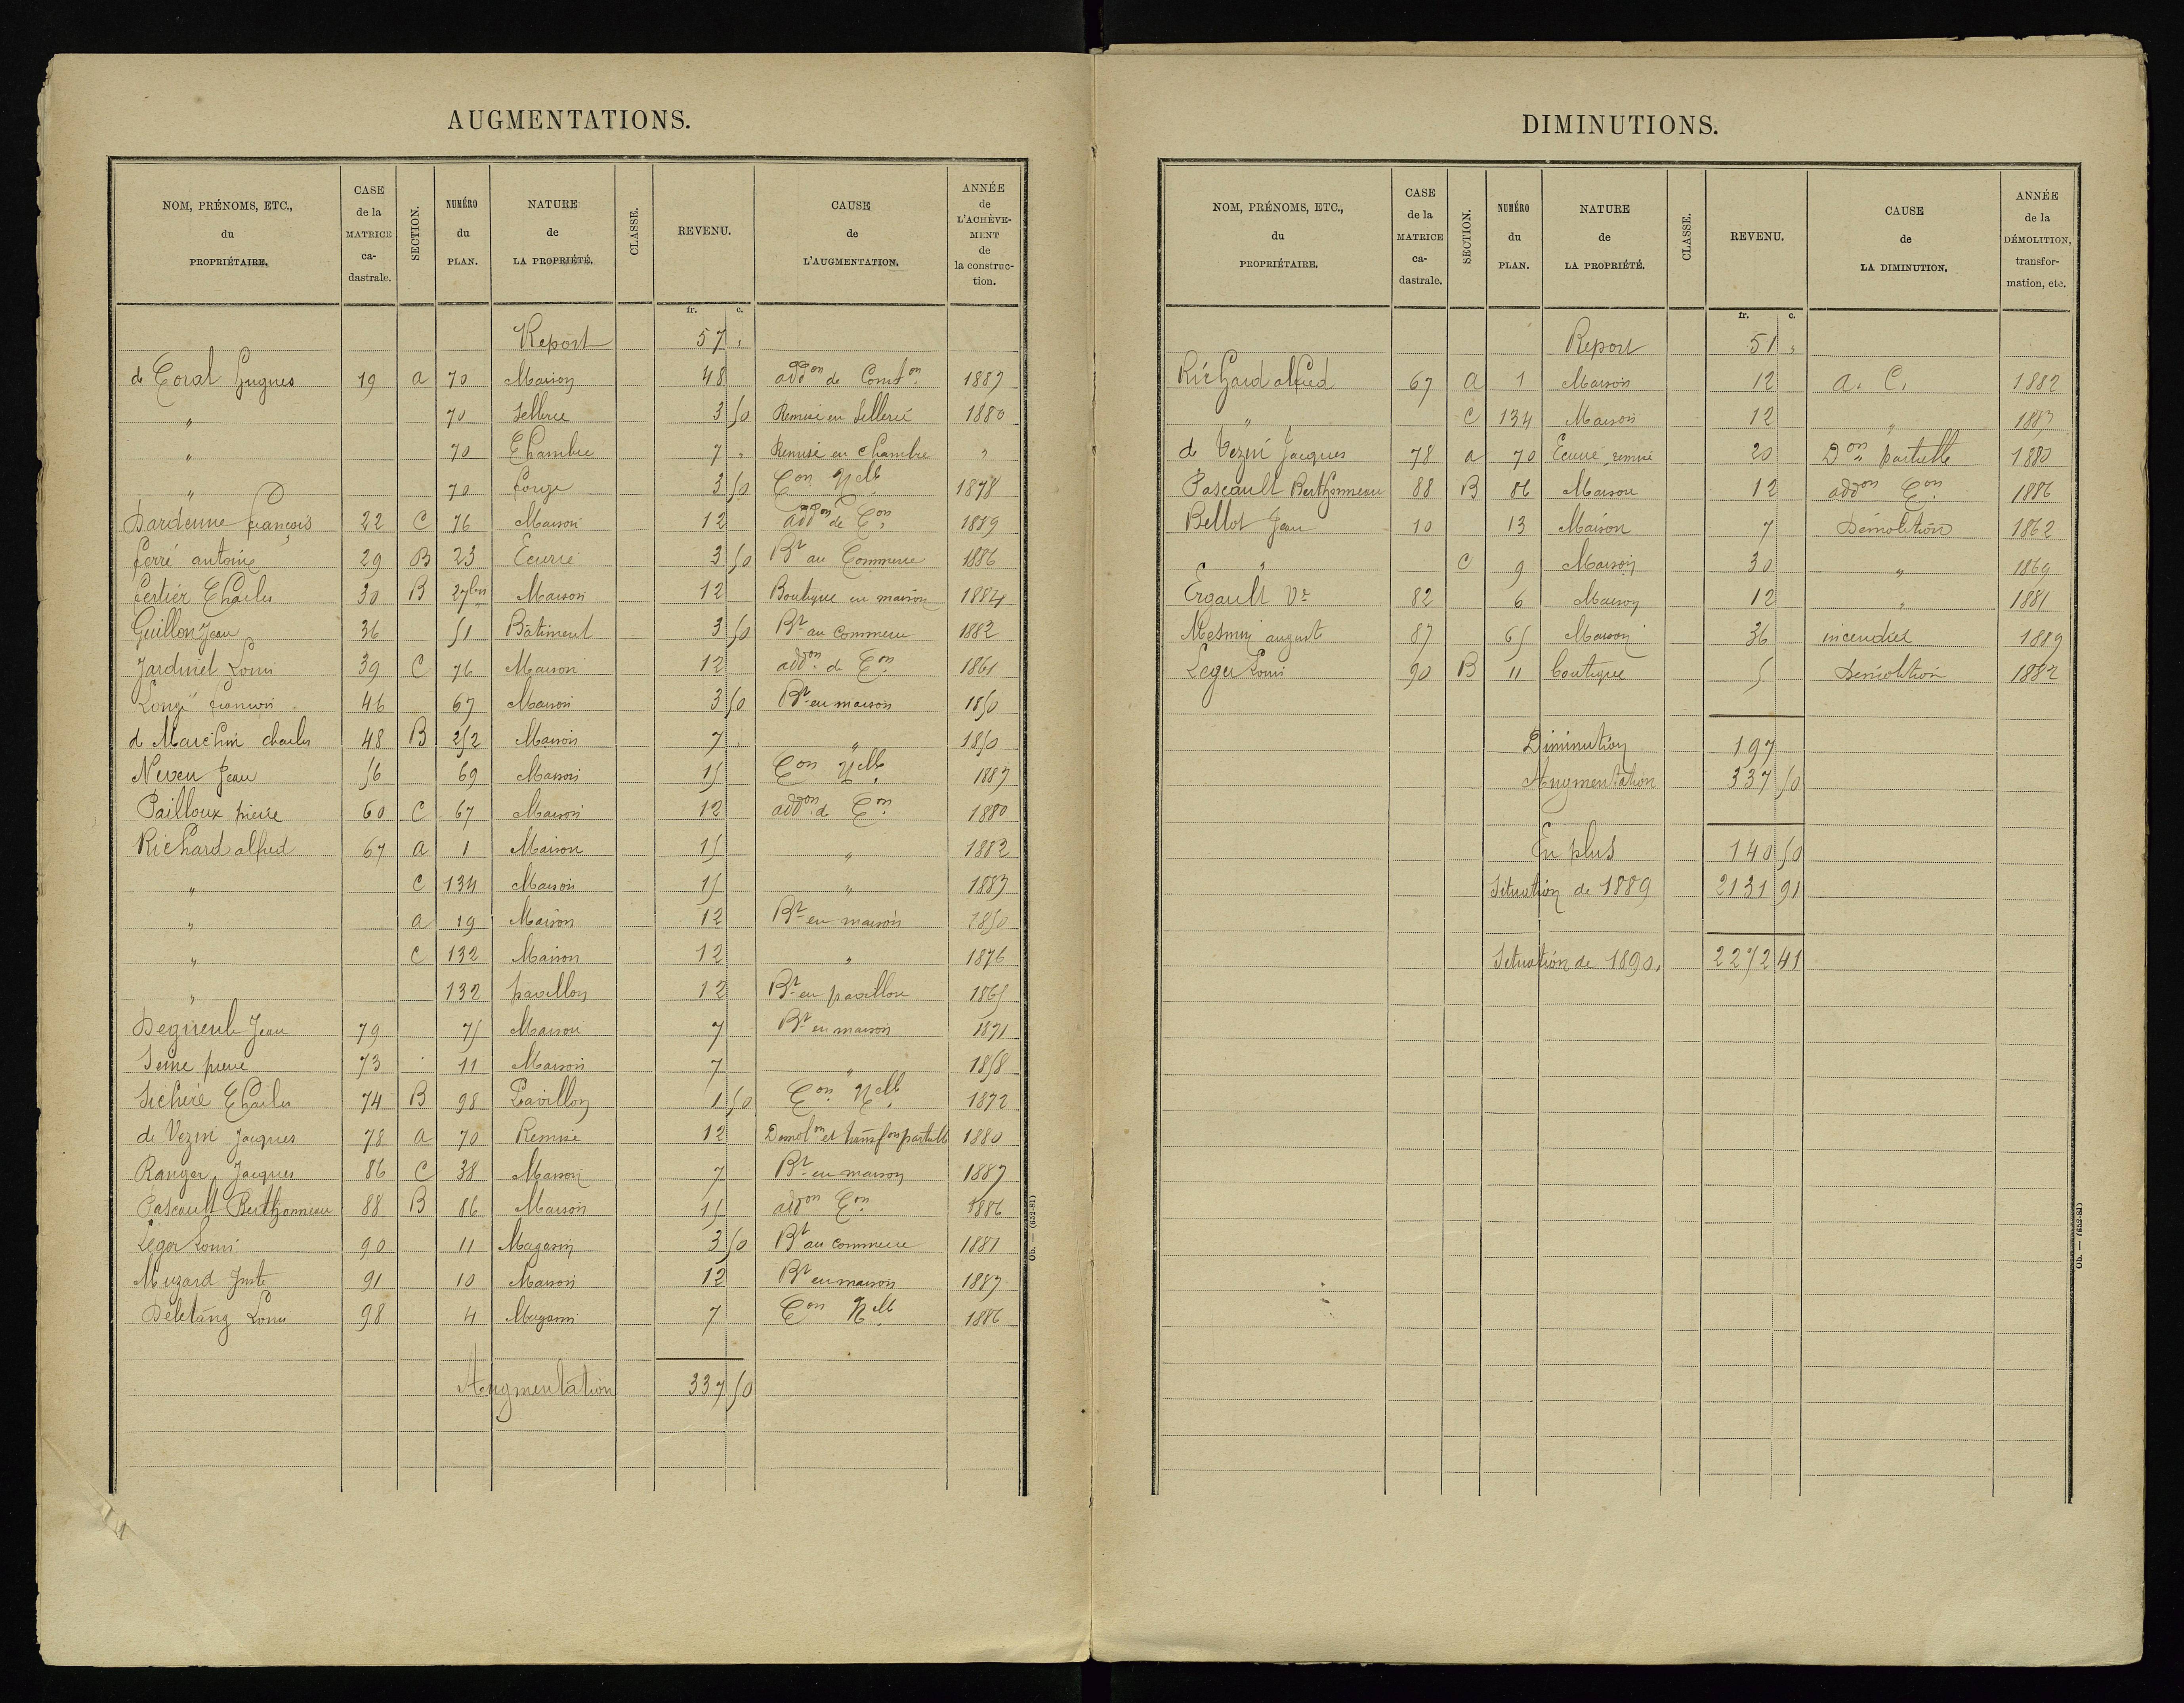 AUGMENTATIONS.
NOM, PRÉNOMS, ETC., du PROPRIÉTAIRE. CASE de la MATRICE ca-dastrale. SECTION. NUMÉRO du PLAN. NATURE de LA PROPRIÉTÉ. CLASSE. REVENU. CAUSE de L'AUGMENTATION. ANNÉE de L'ACHÈVE-MENT de la construc-tion.
fr. c.
Report 57 "
de Coral Hugues 19 a 70 Maison 48 addon de Conston 1887
" 70 Sellerie 3 50 Remise en Sellerie 1880
" 70 Chambre 7 " Remise en Chambre "
" 70 forge 3 50 Con Nelle 1878
Dardenne françois 22 C 76 Maison 12 addon de Con 1889
ferré antoine 29 B 23 Ecurie 3 50 Bt au Commerce 1886
Certier Charles 30 B 27bis Maison 12 Boutique en maison 1884
Guillon Jean 36 51 Bâtiment 3 50 Bt au commerce 1882
Jardinet Louis 39 C 76 Maison 12 addon de Con 1861
Longé francois 46 67 Maison 3 50 Bt en maison 1850
de Marchin charles 48 B 252 Maison 7 " " 1850
Neveu Jean 56 69 Maison 15 Con Nelle 1887
Pailloux pierre 60 C 67 Maison 12 addon de Con 1880
Richard alfred 67 a 1 Maison 15 " 1882
" C 134 Maison 15 " 1887
" a 19 Maison 12 Bt en maison 1850
" C 132 Maison 12 " 1876
" 132 pavillon 12 Bt en pavillon 1865
Jean 79 75 Maison 7 Bt en maison 1871
pierre 73 11 Maison 7 " 1858
Sichère Charles 74 B 98 Pavillon 1 50 Con Nelle 1872
de Vezin Jacques 78 a 70 Remise 12 Demolon et transfon partielle 1880
Ranger Jacques 86 C 38 Maison 7 Bt en maison 1887
Pascault Berthonneau 88 B 86 Maison 15 addon Con 1886
Leger Louis 90 11 Magasin 3 50 Bt au commerce 1881
Muzard Just 91 10 Maison 12 Bt en maison 1887
Deletang Louis 98 4 Magasin 7 Con Nelle 1886
Augmentation 337 50
Ob. — (652-81)
DIMINUTIONS.
NOM, PRÉNOMS, ETC., du PROPRIÉTAIRE. CASE de la MATRICE ca-dastrale. SECTION. NUMÉRO du PLAN. NATURE de LA PROPRIÉTÉ. CLASSE. REVENU. CAUSE de LA DIMINUTION. ANNÉE de la DÉMOLITION, transfor-mation, etc.
fr. c.
Report 51 "
Richard alfred 67 a 1 Maison 12 a. C. 1882
" C 134 Maison 12 " 1887
de Vezin Jacques 78 a 70 Ecurie, remise 20 Don partielle 1880
Pascault Berthonneau 88 B 86 Maison 12 addon Con 1886
Bellot Jean 10 13 Maison 7 Démolition 1862
" C 9 Maison 30 " 1869
Ergault Ve 82 6 Maison 12 " 1881
Mesmin august 87 65 Maison 36 incendie 1889
Leger Louis 90 B 11 boutique 5 Démolition 1882
Diminution 197
Augmentation 337 50
En plus 140 50
Situation de 1889 2131 91
Situation de 1890. 2272 41
Ob. — (652-81)